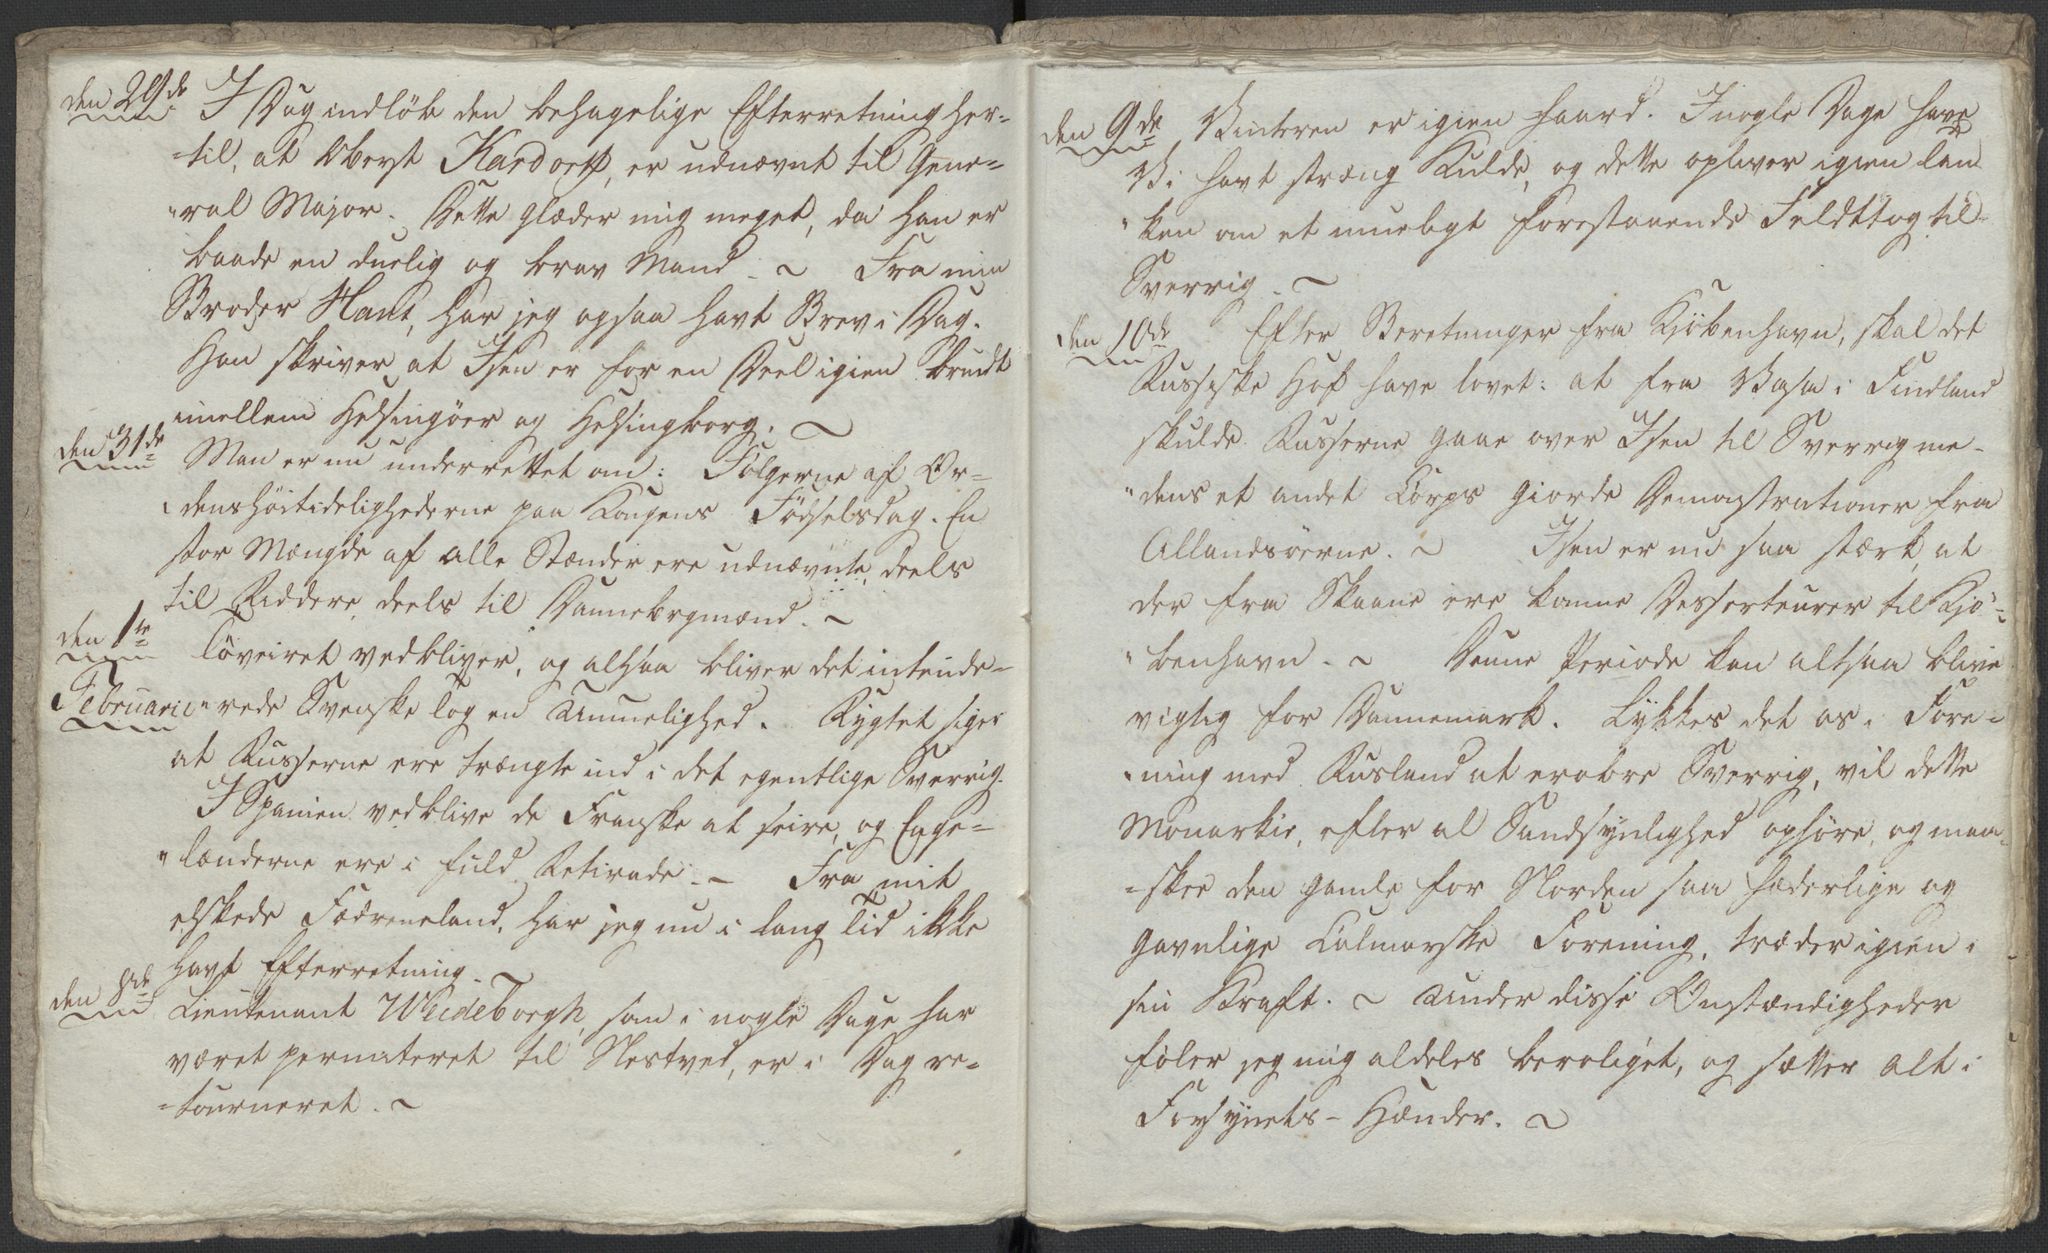 den 29de I Dag indløb den behagelige Efterretning her-
-til, at Oberst Kardorff, er udnævnt til Gene-
"ral Major. Dette glæder mig meget, da han er
baade en duelig og brav Mand. ~ Fra min
Broder Hans, har jeg ogsaa havt Brev i Dag.
Han skriver at Isen er for en Deel igien brudt
imellem Helsingöer og Helsingborg. ~
den 31de Man er nu underrettet om: Fölgerne af Or-
denshöitidelighederne paa Kongens Födselsdag. En
stor Mængde af alle Stænder ere udnævnte, deels
til Riddere, deels til Dannebrgmænd. ~
den 1te Töveiret vedbliver, og altsaa bliver det intende-
Februarii "rede Svenske Tog en Umuelighed. Rygtet siger
at Russerne ere trængte ind i det egentlige Sverrig.
I Spanien vedblive de Franske at seire, og Enge-
"lænderne ere i fuld Retirade. ~ Fra mit
elskede Fødreneland, har jeg nu i lang Tid ikke
havt Efterretning. ~
den 8de Lieutenant Weideborgh, som i nogle Dage har
været permiteret til Nestved, er i Dag re-
-tourneret. ~
den 9de Vinteren er igien haard. I nogle Dage have
Vi havt stræng Kulde, og dette opliver igien Tan
"ken om et mueligt forestaaende Feldttog til
Sverrig. ~
den 10de Efter Beretninger fra Kjöbenhavn, skal det
Russiske Hof have lovet: at fra Vasa i Findland
skulde Russerne gaae over Isen til Sverrig me-
"dens et andet Corps giorde Demonstrationer fra
Allandsöerne. ~ Isen er nu saa stærk, at
der fra Skaane ere komne Desserteurer til Kjö-
"benhavn. ~ Denne Periode kan altsaa blive
vigtig for Dannemark. Lykkes det os i Fore-
-ning med Rusland at erobre Sverrig, vil dette
Monarkie, efter al Sandsynlighed ophöre, og maa-
-skee den gamle for Norden saa hæderlige og
gavnlige Calmarske Forening, træder igien i
sin Kraft. ~ Under disse Omstændigheder
föler jeg mig aldeles beroliget, og sætter alt i
Forsynets-Hænder. ~